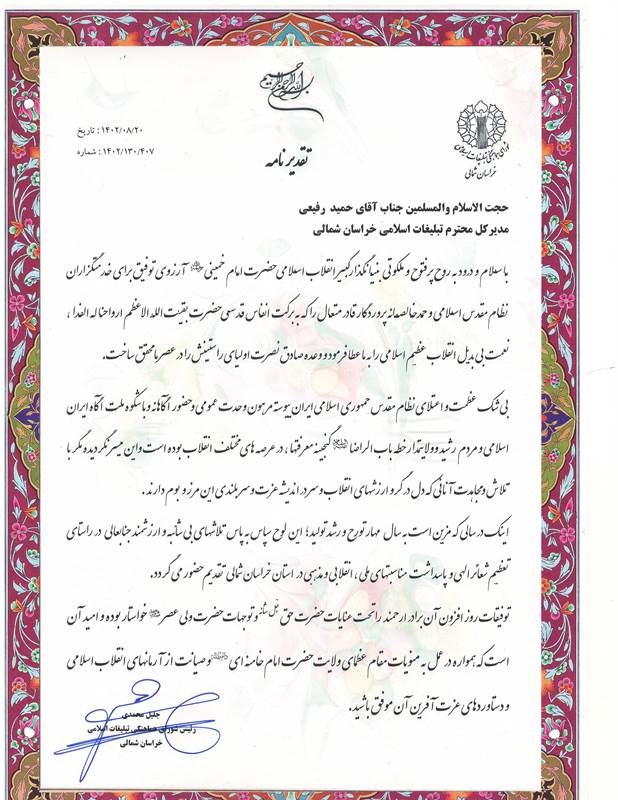 بسم الله الرحمن الرحیم
شورای هماهنگی تبلیغات اسلامی
خراسان شمالی
تاریخ : ۱۴۰۲/۰۸/۲۰
شماره : ۱۴۰۲/۱۳۰/۴۰۷
تقدیرنامه
حجت الاسلام والمسلمین جناب آقای حمید رفیعی
مدیرکل محترم تبلیغات اسلامی خراسان شمالی
با سلام و درود به روح پرفتوح و ملکوتی بنیانگذار کبیر انقلاب اسلامی حضرت امام خمینی آرزوی توفیق برای خدمتگزاران
نظام مقدس اسلامی و حمد خالصانه پروردگار قادر متعال را که به برکت انفاس قدسی حضرت بقیت الله الاعظم ارواحنا له الفدا ،
نعمت بی بدیل انقلاب عظیم اسلامی را به ما عطا فرمود و وعده صادق نصرت اولیای راستینش را در عصر ما محقق ساخت.
بی شک عظمت و اعتلای نظام مقدس جمهوری اسلامی ایران پیوسته مرهون وحدت عمومی و حضور آگاهانه و باشکوه ملت آگاه ایران
اسلامی و مردم رشید و ولایتمدار خطه باب الرضا گنجینه معرفتها ، در عرصه های مختلف انقلاب بوده است و این میسر نگردیده مگر با
تلاش و مجاهدت آنانی که دل در گرو ارزشهای انقلاب و سر در اندیشه عزت و سربلندی این مرز و بوم دارند.
اینک در سالی که مزین است به سال مهار تورم و رشد تولید؛ این لوح سپاس به پاس تلاشهای بی شائبه و ارزشمند جنابعالی در راستای
تعظیم شعائر الهی و پاسداشت مناسبتهای ملی ، انقلابی و مذهبی در استان خراسان شمالی تقدیم حضور می گردد.
توفیقات روز افزون آن برادر ارجمند را تحت عنایات حضرت حق جل شانه و توجهات حضرت ولی عصر خواستار بوده و امید آن
است که همواره در عمل به منویات مقام عظمای ولایت حضرت امام خامنه ای و صیانت از آرمانهای انقلاب اسلامی
و دستاوردهای عزت آفرین آن موفق باشید.
جلیل محمدی
رئیس شورای هماهنگی تبلیغات اسلامی
خراسان شمالی